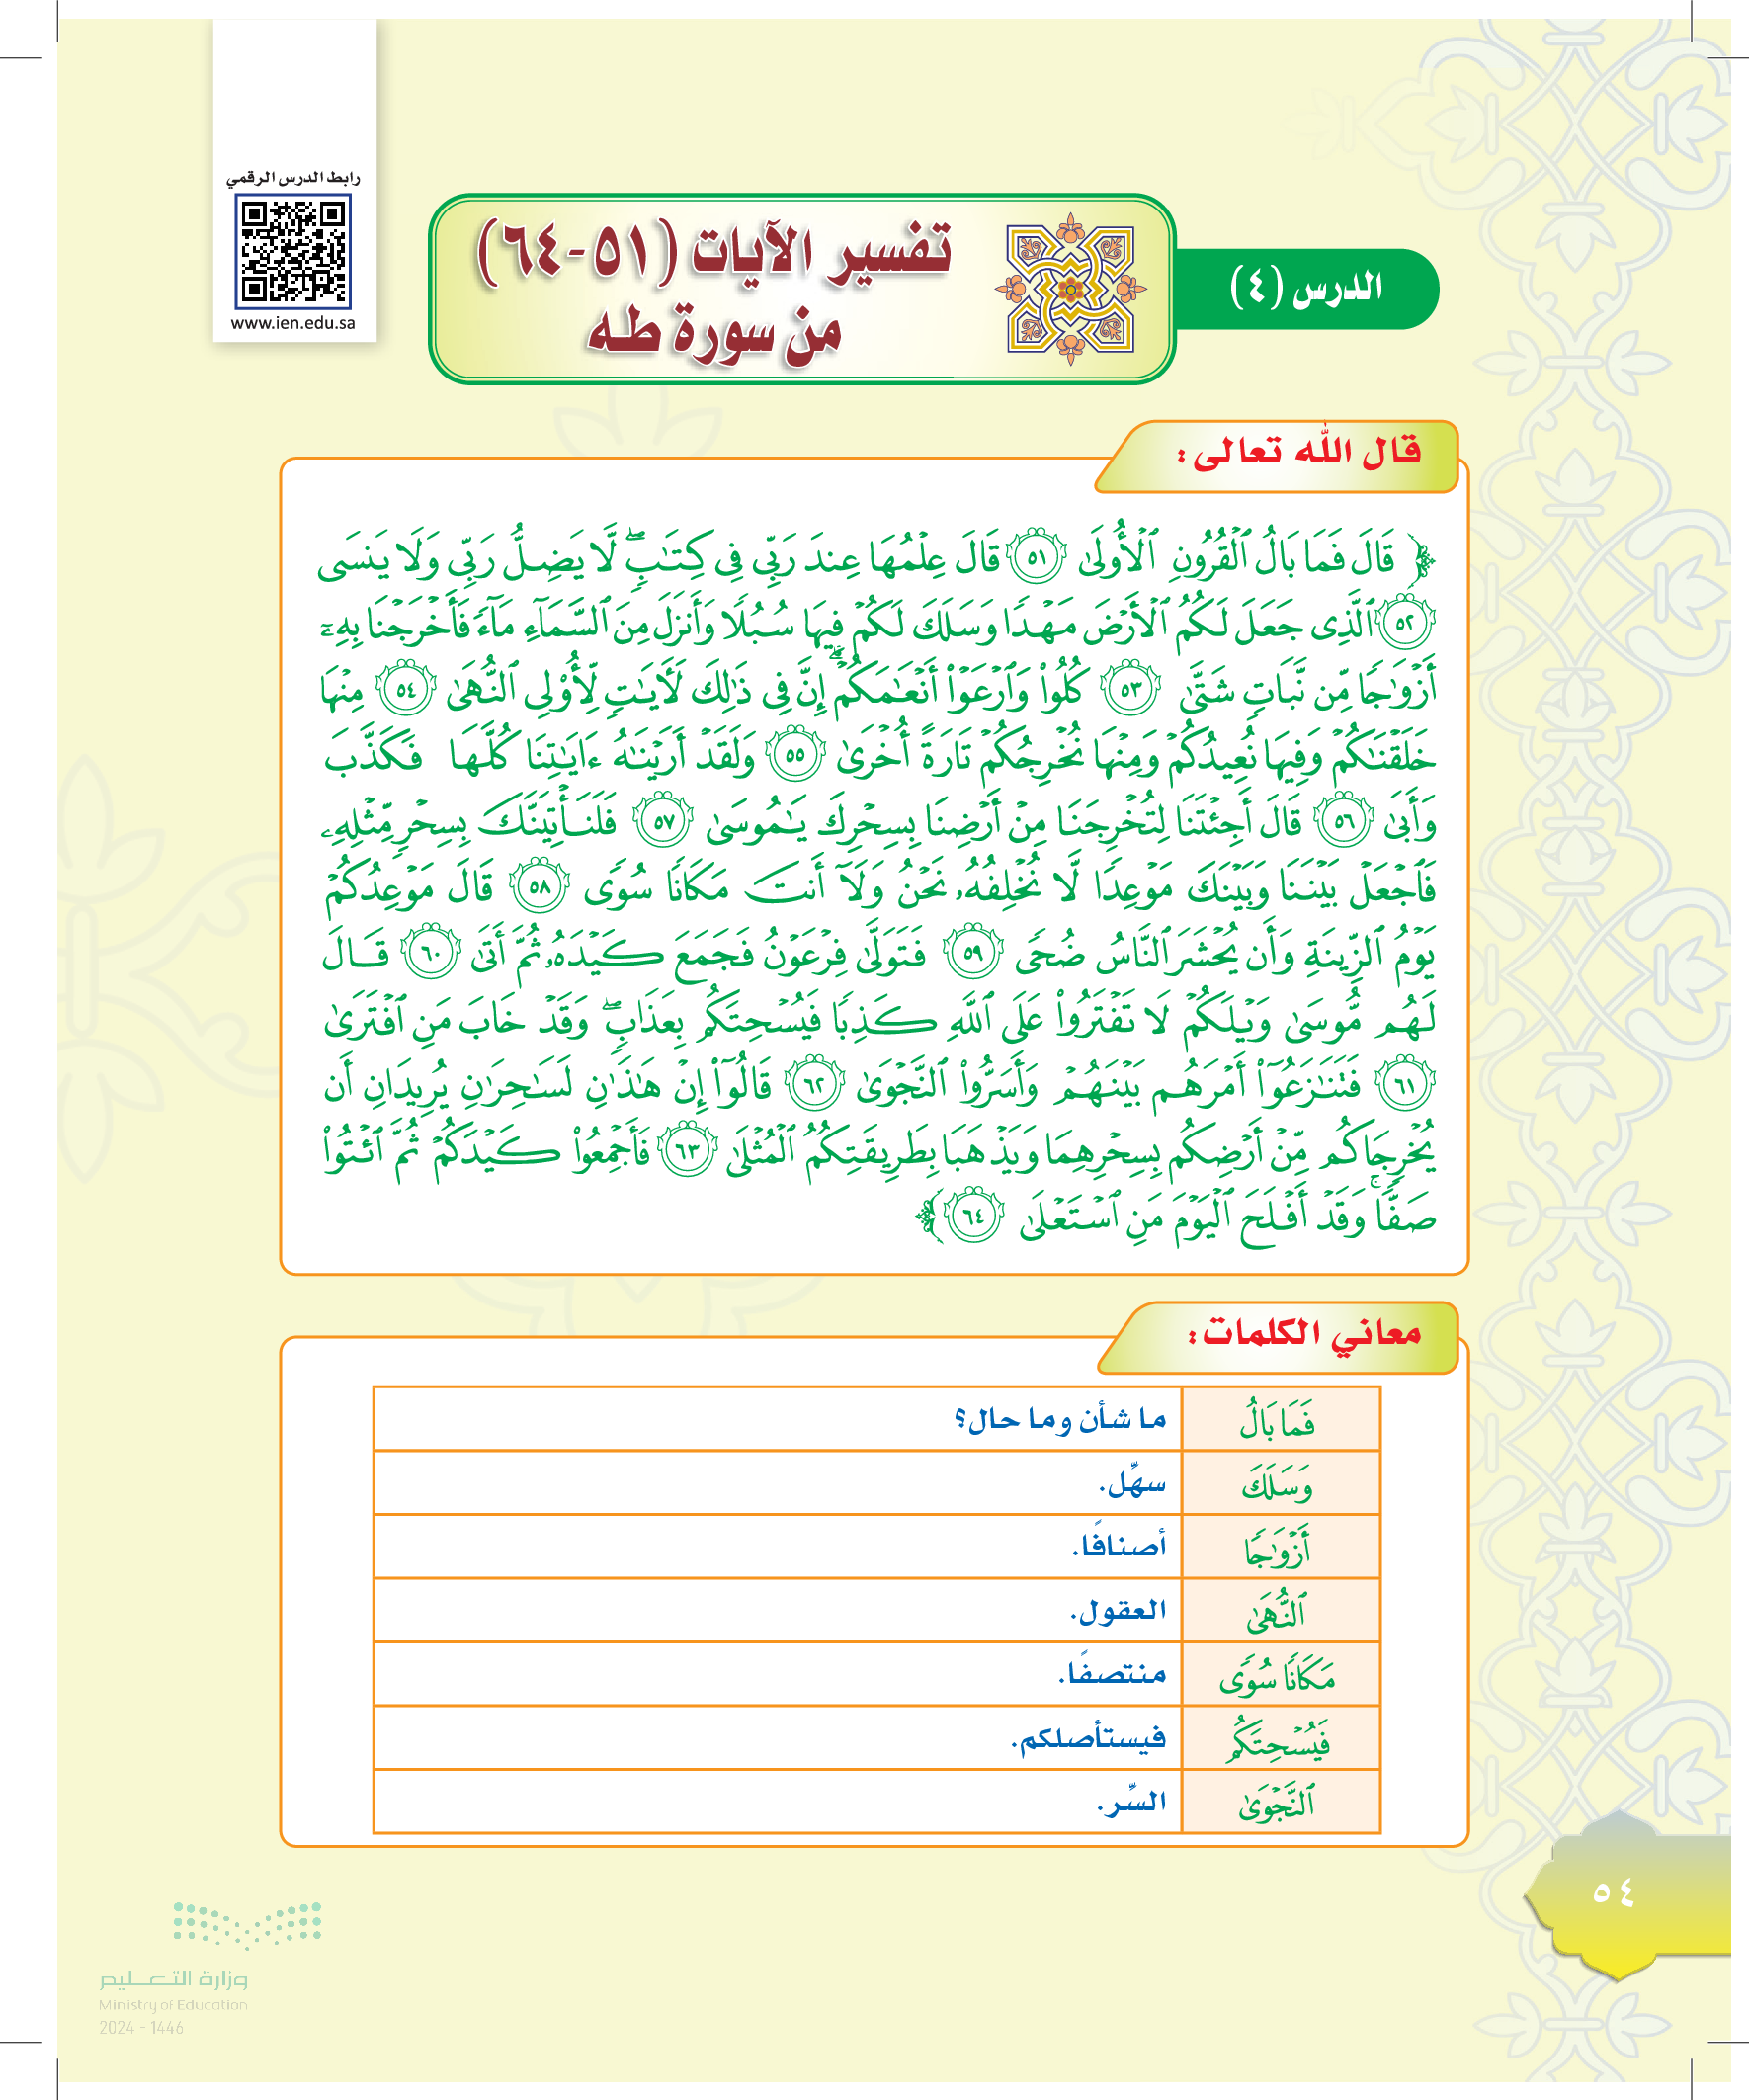 رابط الدرس الرقمي
www.ien.edu.sa
الدرس (٤)
تفسير الآيات (٥١-٦٤)
من سورة طه
قال الله تعالى:
﴿ قَالَ فَمَا بَالُ ٱلۡقُرُونِ ٱلۡأُولَىٰ ٥١ قَالَ عِلۡمُهَا عِندَ رَبِّي فِي كِتَٰبٖۖ لَّا يَضِلُّ رَبِّي وَلَا يَنسَى
٥٢ ٱلَّذِي جَعَلَ لَكُمُ ٱلۡأَرۡضَ مَهۡدٗا وَسَلَكَ لَكُمۡ فِيهَا سُبُلٗا وَأَنزَلَ مِنَ ٱلسَّمَآءِ مَآءٗ فَأَخۡرَجۡنَا بِهِۦٓ
أَزۡوَٰجٗا مِّن نَّبَاتٖ شَتَّىٰ ٥٣ كُلُواْ وَٱرۡعَوۡاْ أَنۡعَٰمَكُمۡۚ إِنَّ فِي ذَٰلِكَ لَأٓيَٰتٖ لِّأُوْلِي ٱلنُّهَىٰ ٥٤ مِنۡهَا
خَلَقۡنَٰكُمۡ وَفِيهَا نُعِيدُكُمۡ وَمِنۡهَا نُخۡرِجُكُمۡ تَارَةً أُخۡرَىٰ ٥٥ وَلَقَدۡ أَرَيۡنَٰهُ ءَايَٰتِنَا كُلَّهَا فَكَذَّبَ
وَأَبَىٰ ٥٦ قَالَ أَجِئۡتَنَا لِتُخۡرِجَنَا مِنۡ أَرۡضِنَا بِسِحۡرِكَ يَٰمُوسَىٰ ٥٧ فَلَنَأۡتِيَنَّكَ بِسِحۡرٖ مِّثۡلِهِۦ
فَٱجۡعَلۡ بَيۡنَنَا وَبَيۡنَكَ مَوۡعِدٗا لَّا نُخۡلِفُهُۥ نَحۡنُ وَلَآ أَنتَ مَكَانٗا سُوٗى ٥٨ قَالَ مَوۡعِدُكُمۡ
يَوۡمُ ٱلزِّينَةِ وَأَن يُحۡشَرَ ٱلنَّاسُ ضُحٗى ٥٩ فَتَوَلَّىٰ فِرۡعَوۡنُ فَجَمَعَ كَيۡدَهُۥ ثُمَّ أَتَىٰ ٦٠ قَالَ
لَهُم مُّوسَىٰ وَيۡلَكُمۡ لَا تَفۡتَرُواْ عَلَى ٱللَّهِ كَذِبٗا فَيُسۡحِتَكُم بِعَذَابٖۖ وَقَدۡ خَابَ مَنِ ٱفۡتَرَىٰ
٦١ فَتَنَٰزَعُوٓاْ أَمۡرَهُم بَيۡنَهُمۡ وَأَسَرُّواْ ٱلنَّجۡوَىٰ ٦٢ قَالُوٓاْ إِنۡ هَٰذَٰنِ لَسَٰحِرَٰنِ يُرِيدَانِ أَن
يُخۡرِجَاكُم مِّنۡ أَرۡضِكُم بِسِحۡرِهِمَا وَيَذۡهَبَا بِطَرِيقَتِكُمُ ٱلۡمُثۡلَىٰ ٦٣ فَأَجۡمِعُواْ كَيۡدَكُمۡ ثُمَّ ٱئۡتُواْ
صَفّٗاۚ وَقَدۡ أَفۡلَحَ ٱلۡيَوۡمَ مَنِ ٱسۡتَعۡلَىٰ ٦٤ ﴾
معاني الكلمات:
فَمَا بَالُ ما شأن وما حال؟
وَسَلَكَ سهِّل.
أَزۡوَٰجٗا أصنافًا.
ٱلنُّهَىٰ العقول.
مَكَانٗا سُوٗى منتصفًا.
فَيُسۡحِتَكُم فيستأصلكم.
ٱلنَّجۡوَىٰ السِّر.
٥٤
وزارة التعليم
Ministry of Education
2024 - 1446